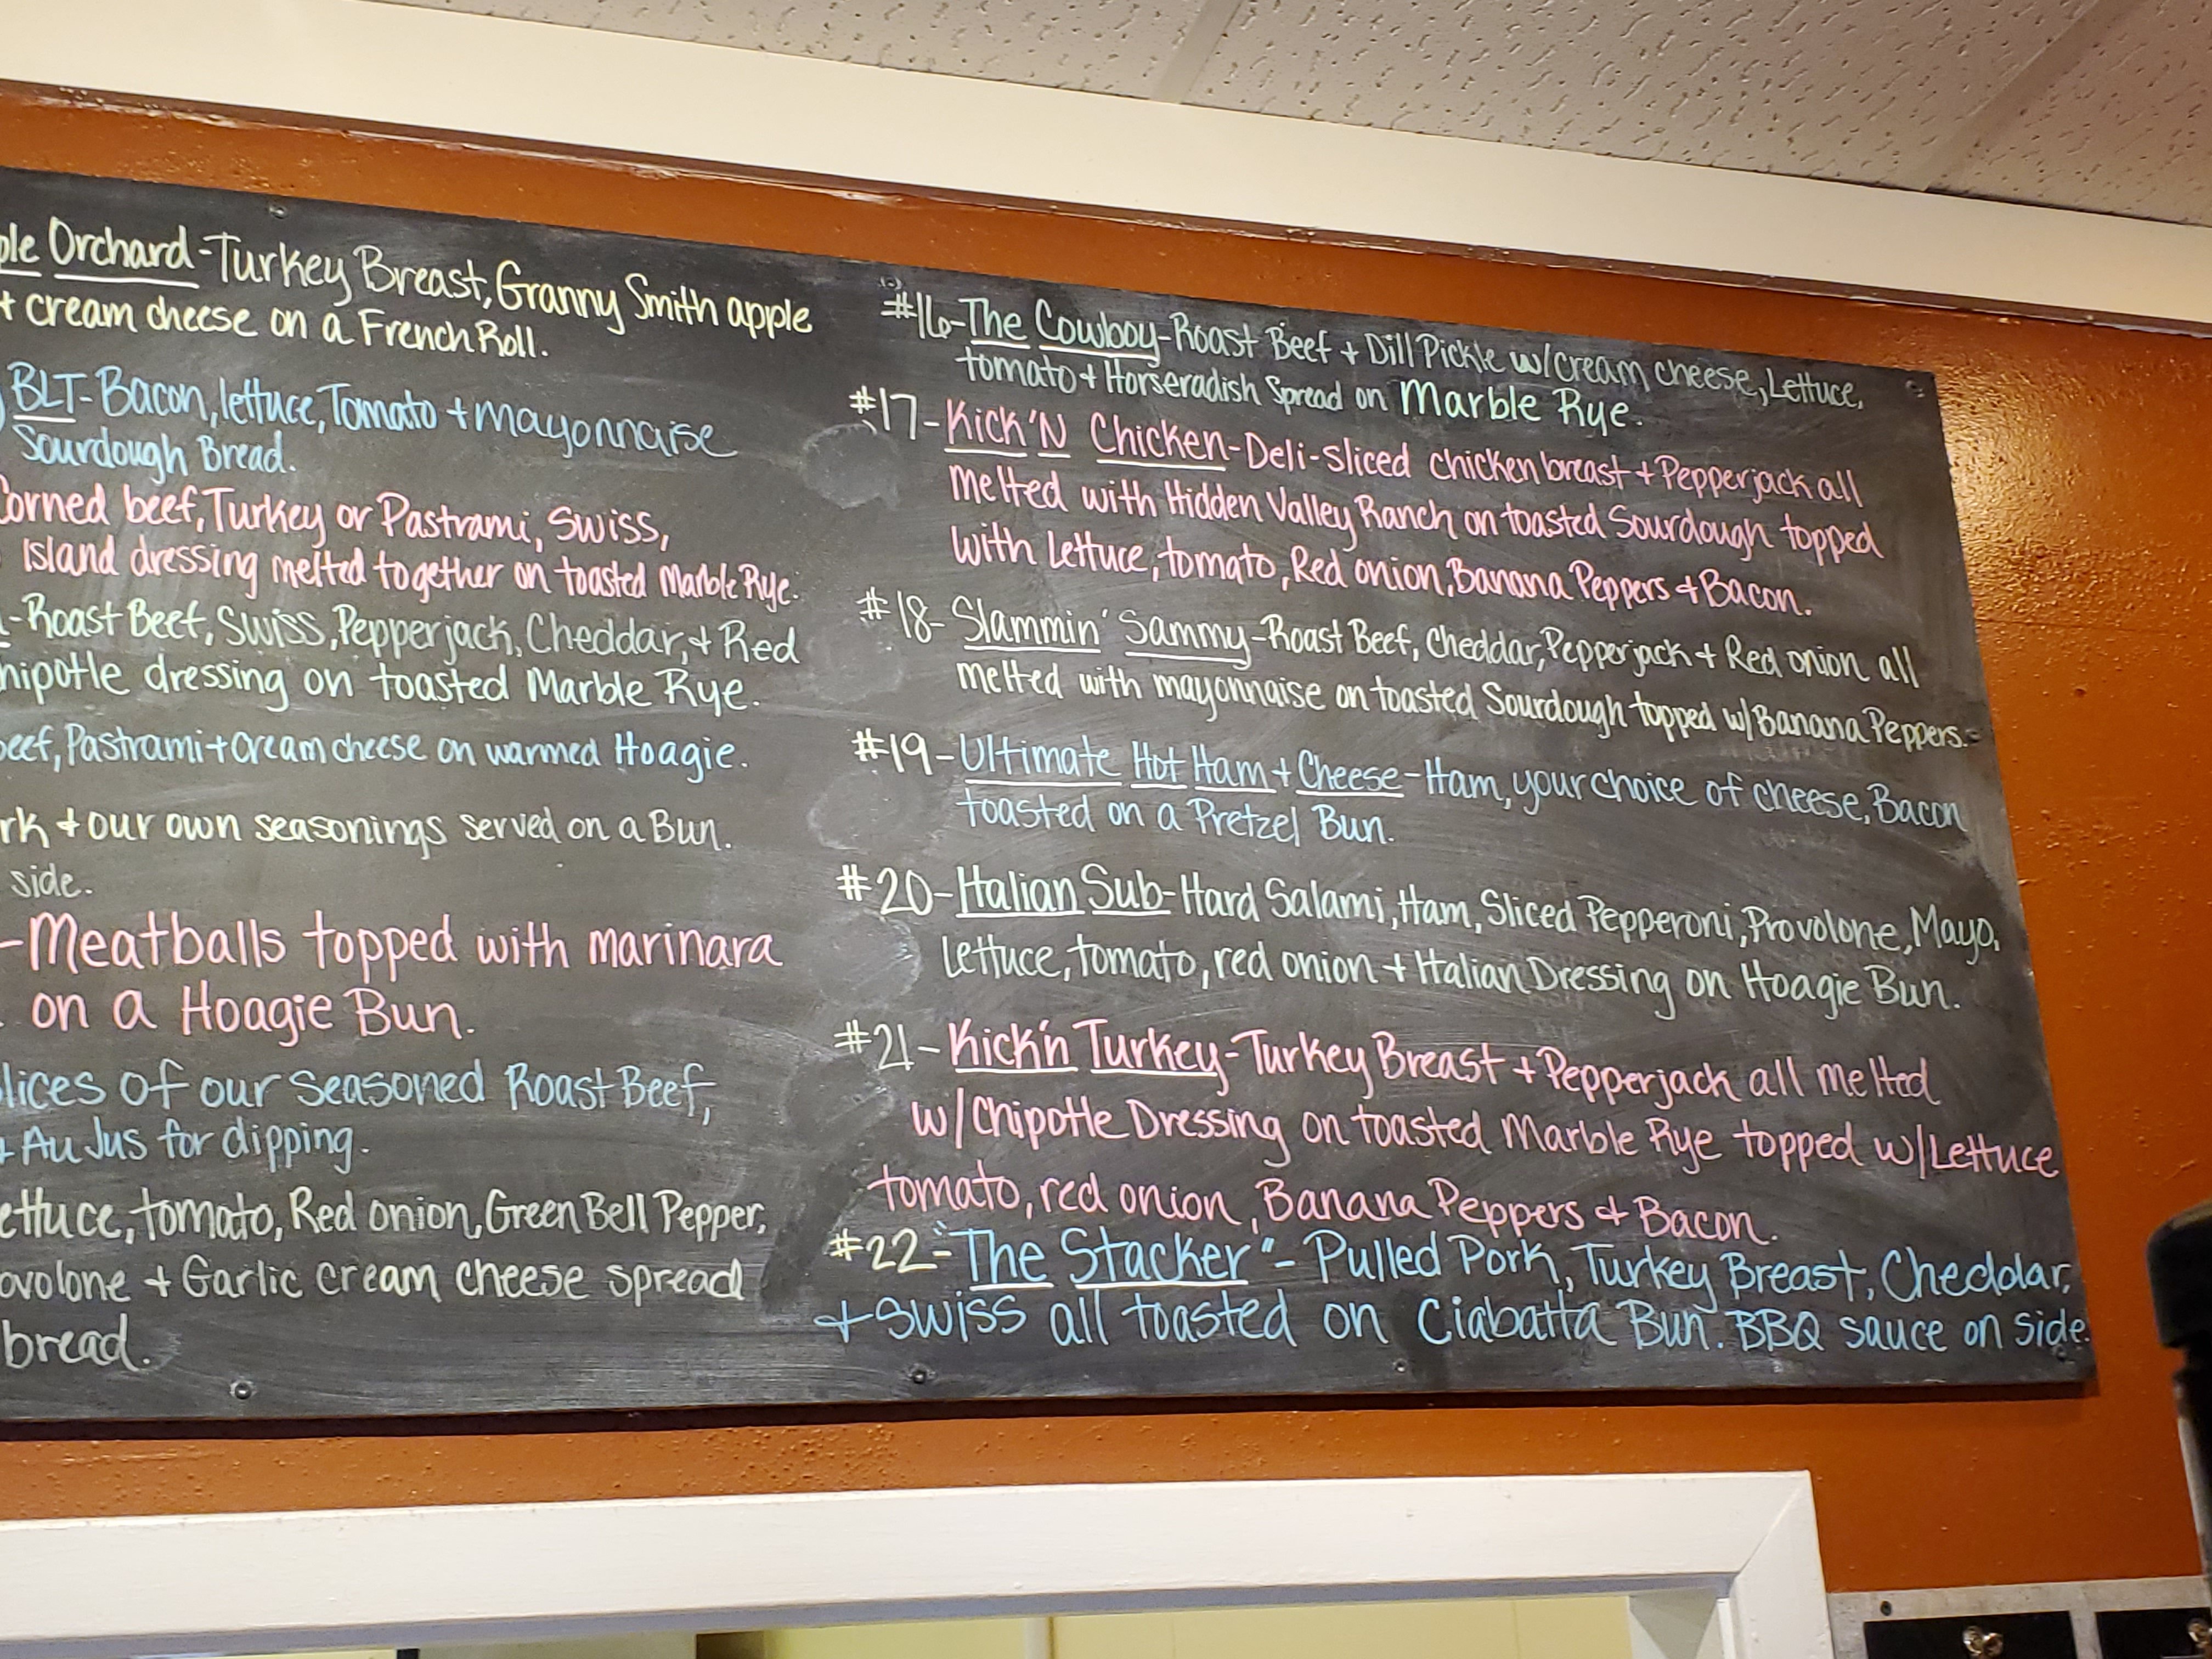 Orchard-Turkey Breast, Granny Smith apple
+ cream cheese on a French Roll.
BLT-Bacon, lettuce, Tomato + mayonnaise
Sourdough Bread.
Corned beef, Turkey or Pastrami, Swiss,
Island dressing melted together on toasted Marble Rye.
-Roast Beef, Swiss, Pepperjack, Cheddar, + Red
hipotle dressing on toasted Marble Rye.
beef, Pastrami + Cream cheese on warmed Hoagie.
rk + our own seasonings served on a Bun.
side.
-Meatballs topped with marinara
on a Hoagie Bun.
lices of our seasoned Roast Beef,
+ Au Jus for dipping.
ettuce, tomato, Red onion, Green Bell Pepper,
ovolone + Garlic cream cheese spread
bread.
#16-The Cowboy-Roast Beef + Dill Pickle w/cream cheese, Lettuce,
tomato + Horseradish Spread on Marble Rye.
#17-Kick'N Chicken-Deli-sliced chicken breast + Pepperjack all
melted with Hidden Valley Ranch on toasted Sourdough topped
with Lettuce, tomato, Red onion, Banana Peppers + Bacon.
#18-Slammin' Sammy-Roast Beef, Cheddar, Pepperjack + Red onion all
melted with mayonnaise on toasted Sourdough topped w/Banana Peppers.
#19-Ultimate Hot Ham + Cheese-Ham, your choice of cheese, Bacon
toasted on a Pretzel Bun.
#20-Italian Sub-Hard Salami, Ham, Sliced Pepperoni, Provolone, Mayo,
lettuce, tomato, red onion + Italian Dressing on Hoagie Bun.
#21-Kick'n Turkey-Turkey Breast + Pepperjack all melted
w/Chipotle Dressing on toasted Marble Rye topped w/Lettuce
tomato, red onion, Banana Peppers + Bacon.
#22-"The Stacker"-Pulled Pork, Turkey Breast, Cheddar,
+ Swiss all toasted on Ciabatta Bun. BBQ sauce on side.